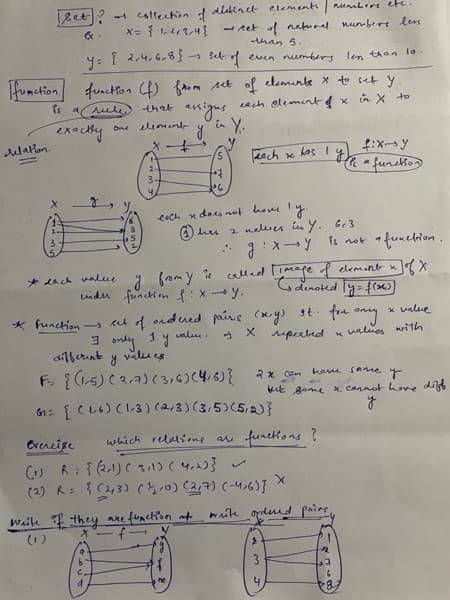 Set ? → collection of distinct elements / numbers etc.
X = { 1, 2, 3, 4 } → set of natural numbers less
than 5.
y = { 2, 4, 6, 8 } → set of even numbers less than 10.
function function (f) from set of elements X to set Y
is a rule that assigns each element of x in X to
exactly one element y in Y.
relation.
X — f → Y
1 2 3 4
5 7 6
each x has 1 y
f: X → Y
is a function
X g → Y
5
6 3 5 2
each x does not have 1 y.
① has 2 values in Y. 6, 3
∴ g : X → Y is not a function.
* each value y from Y is called image of element x of X
under function f : X → Y.
denoted y = f(x)
* Function → set of ordered pairs (x, y) st. for any x value
∃ only 1 y value. X repeated x values with
different y values
F = { (1,5) (2,7) (3,6) (4,6) } 2 x can have same y
but same x cannot have diff
y
G = { (1,6) (1,3) (2,3) (3,5) (5,2) }
Exercise which relations are functions ?
(1) R = { (2,1) (3,1) (4,2) } ✓
(2) R = { (2,3) (½,0) (2,7) (-4,6) } X
Write if they are function write ordered pairs
(1)
X — f → Y
a b c d
g f m
X Y
2 3 4
1 2 7 6 8